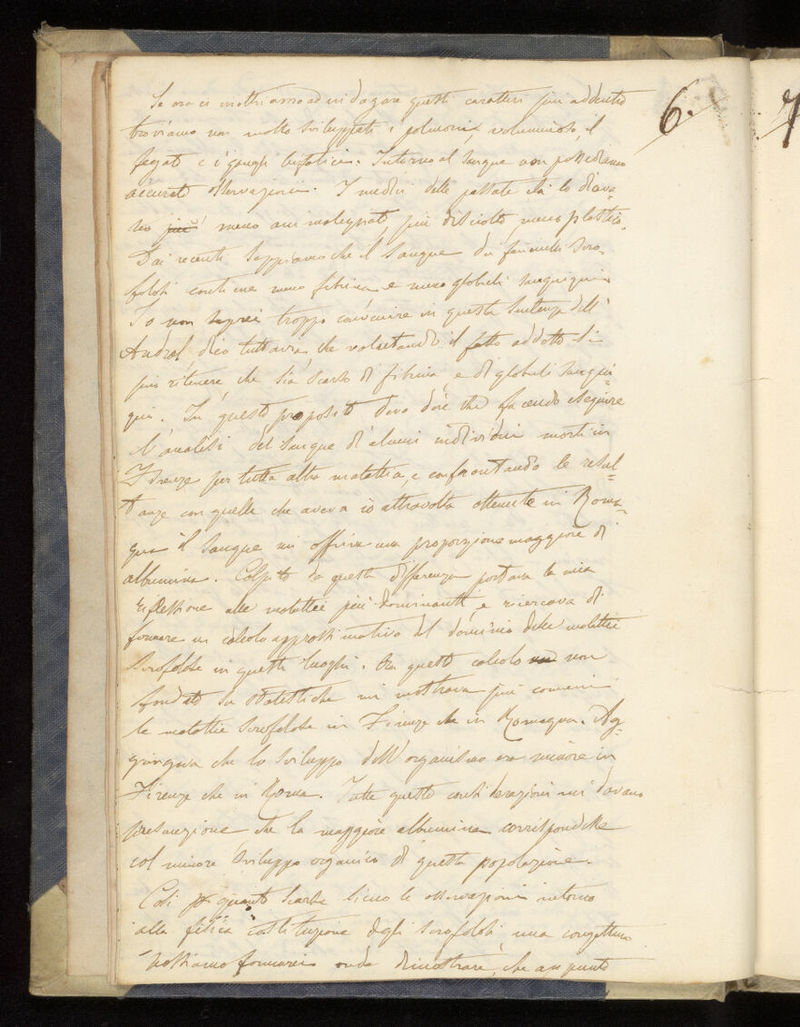 6.
Se ora ci inoltriamo ad indagare questi caratteri più addentro
troviamo non molto sviluppati i polmoni voluminoso il
fegato e i gangli linfatici. Intorno al sangue non possediamo
accurate osservazioni. I medici delle passate età lo diceva-
no più meno animalizzato, più disciolto, meno plastico.
Dai recenti sappiamo che il sangue dei fanciulli scro-
folosi contiene meno fibrina e meno globuli sanguigni
Io non saprei troppo convenire in questa sentenza dell'
Andral dico tuttavia che valutando il fatto addotto si
può ritenere che sia scarso di fibrina e di globuli sangui-
gni. In questo proposito devo dire che facendo eseguire
l'analisi del sangue di alcuni individui morti in
Firenze per tutta altra malattia, e confrontando le resul-
tanze con quelle che aveva io altravolta ottenute in Roma-
gna il sangue mi offriva una proporzione maggiore di
albumina. Colpito da questa differenza portava la mia
riflessione alle malattie più dominanti, e ricercava di
formare un calcolo approssimativo del dominio delle malattie
scrofolose in questi luoghi. Ora questo calcolo non
fondato su statistiche mi mostrava più comuni
le malattie scrofolose in Firenze che in Romagna. Ag-
giungeva che lo sviluppo dell'organismo era minore in
Firenze che in Roma. Tutte queste considerazioni mi davano
presunzione che la maggiore albumina corrispondesse
col minore sviluppo organico di questa popolazione.
Così quanto scarse sieno le osservazioni intorno
alla fisica costituzione degli scrofolosi una congettura
possiamo formarci onde dimostrare, che appunto